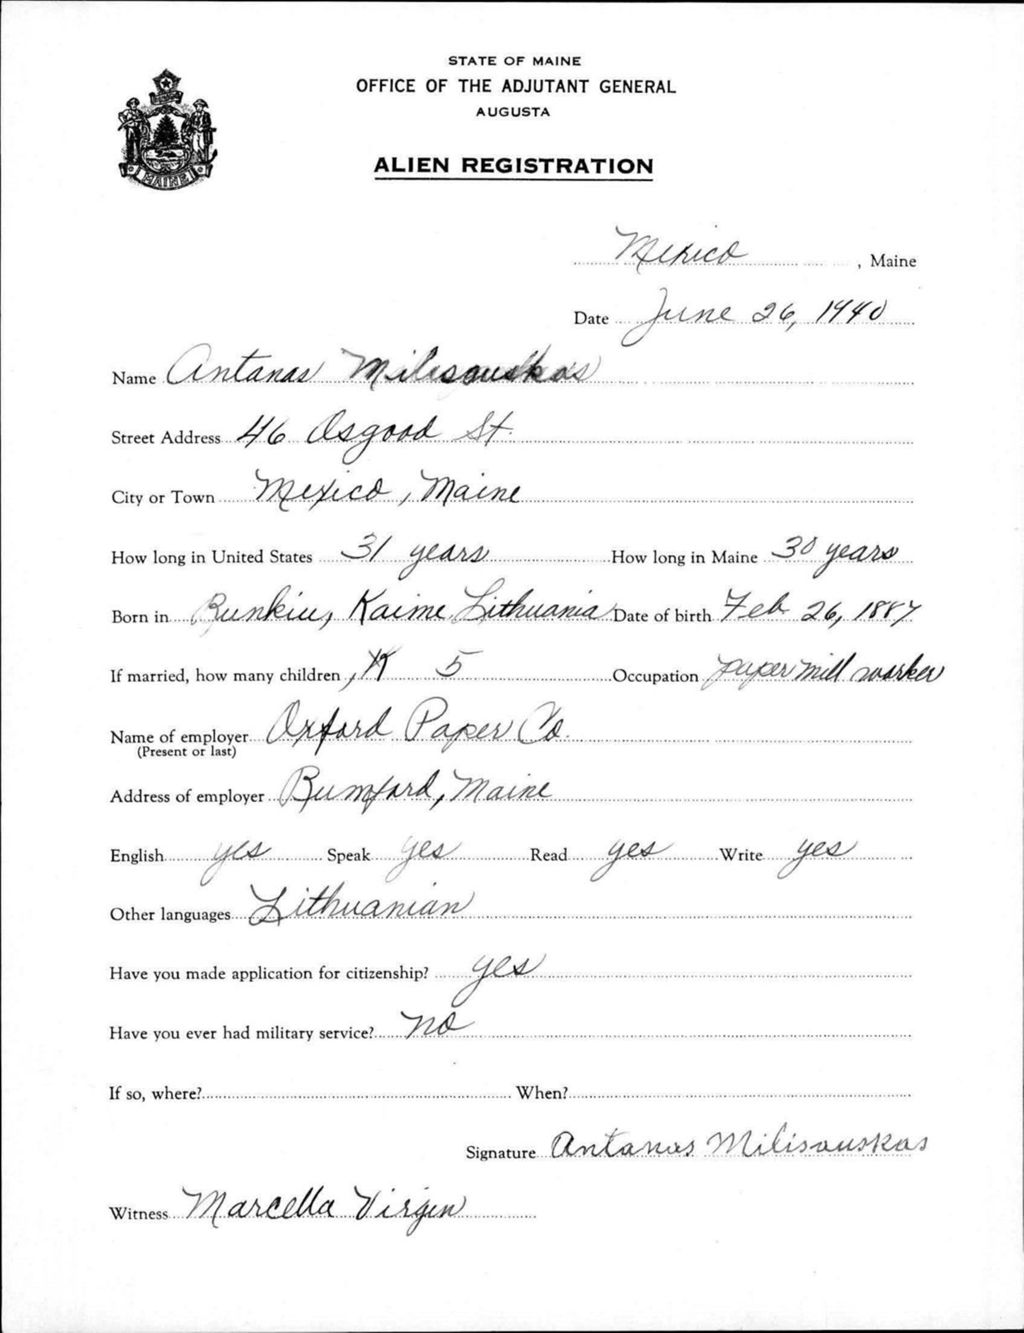 STATE OF MAINE
OFFICE OF THE ADJUTANT GENERAL
AUGUSTA
ALIEN REGISTRATION
MAINE
Mexico, Maine
Date June 26, 1940
Name Antanas Milisauskas
Street Address 46 Osgood St.
City or Town Mexico, Maine
How long in United States 31 years How long in Maine 30 years
Born in Runkiu, Kaime, Lithuania Date of birth Feb 26, 1887
If married, how many children 5 Occupation paper mill worker
Name of employer Oxford Paper Co.
(Present or last)
Address of employer Rumford, Maine
English yes Speak yes Read yes Write yes
Other languages Lithuanian
Have you made application for citizenship? yes
Have you ever had military service? no
If so, where? When?
Signature Antanas Milisauskas
Witness Marcella Virgin